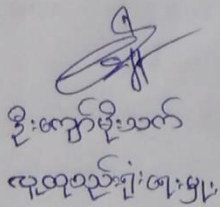 ဦးကျော်မိုးသက်
လူထုစည်းရုံးရေးမှူး